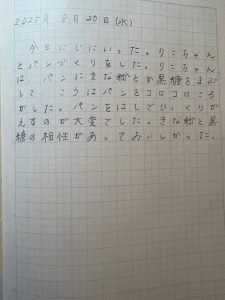 2025年 8月 20日(水)
今日にじにいった。りこちゃん
とパンづくりをした。りこちゃん
は、パンにきな粉とか黒糖をまぶ
して、こうはパンをコロコロころ
がした。パンをはしでひっくりが
えすのが大変でした。きな粉と黒
糖の相性があっておいしかった。